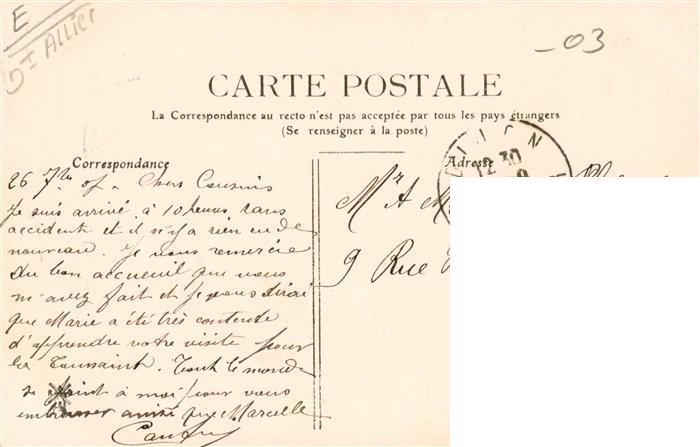 E
Dt Allier
-03
CARTE POSTALE
La Correspondance au recto n'est pas acceptée par tous les pays étrangers
(Se renseigner à la poste)
Correspondance
Adresse
12 30
26 7bre 07 Chers Cousins
Je suis arrivé à 10 heures sans
accidents et il n'y a rien eu de
nouveau. Je vous remercie
du bon accueil que vous
m'avez fait et je vous dirai
que Marie a été très contente
d'apprendre votre visite pour
la Toussaint. Tout le monde
se joint à moi pour vous
embrasser ainsi que Marcelle
Mr A M
9 Rue